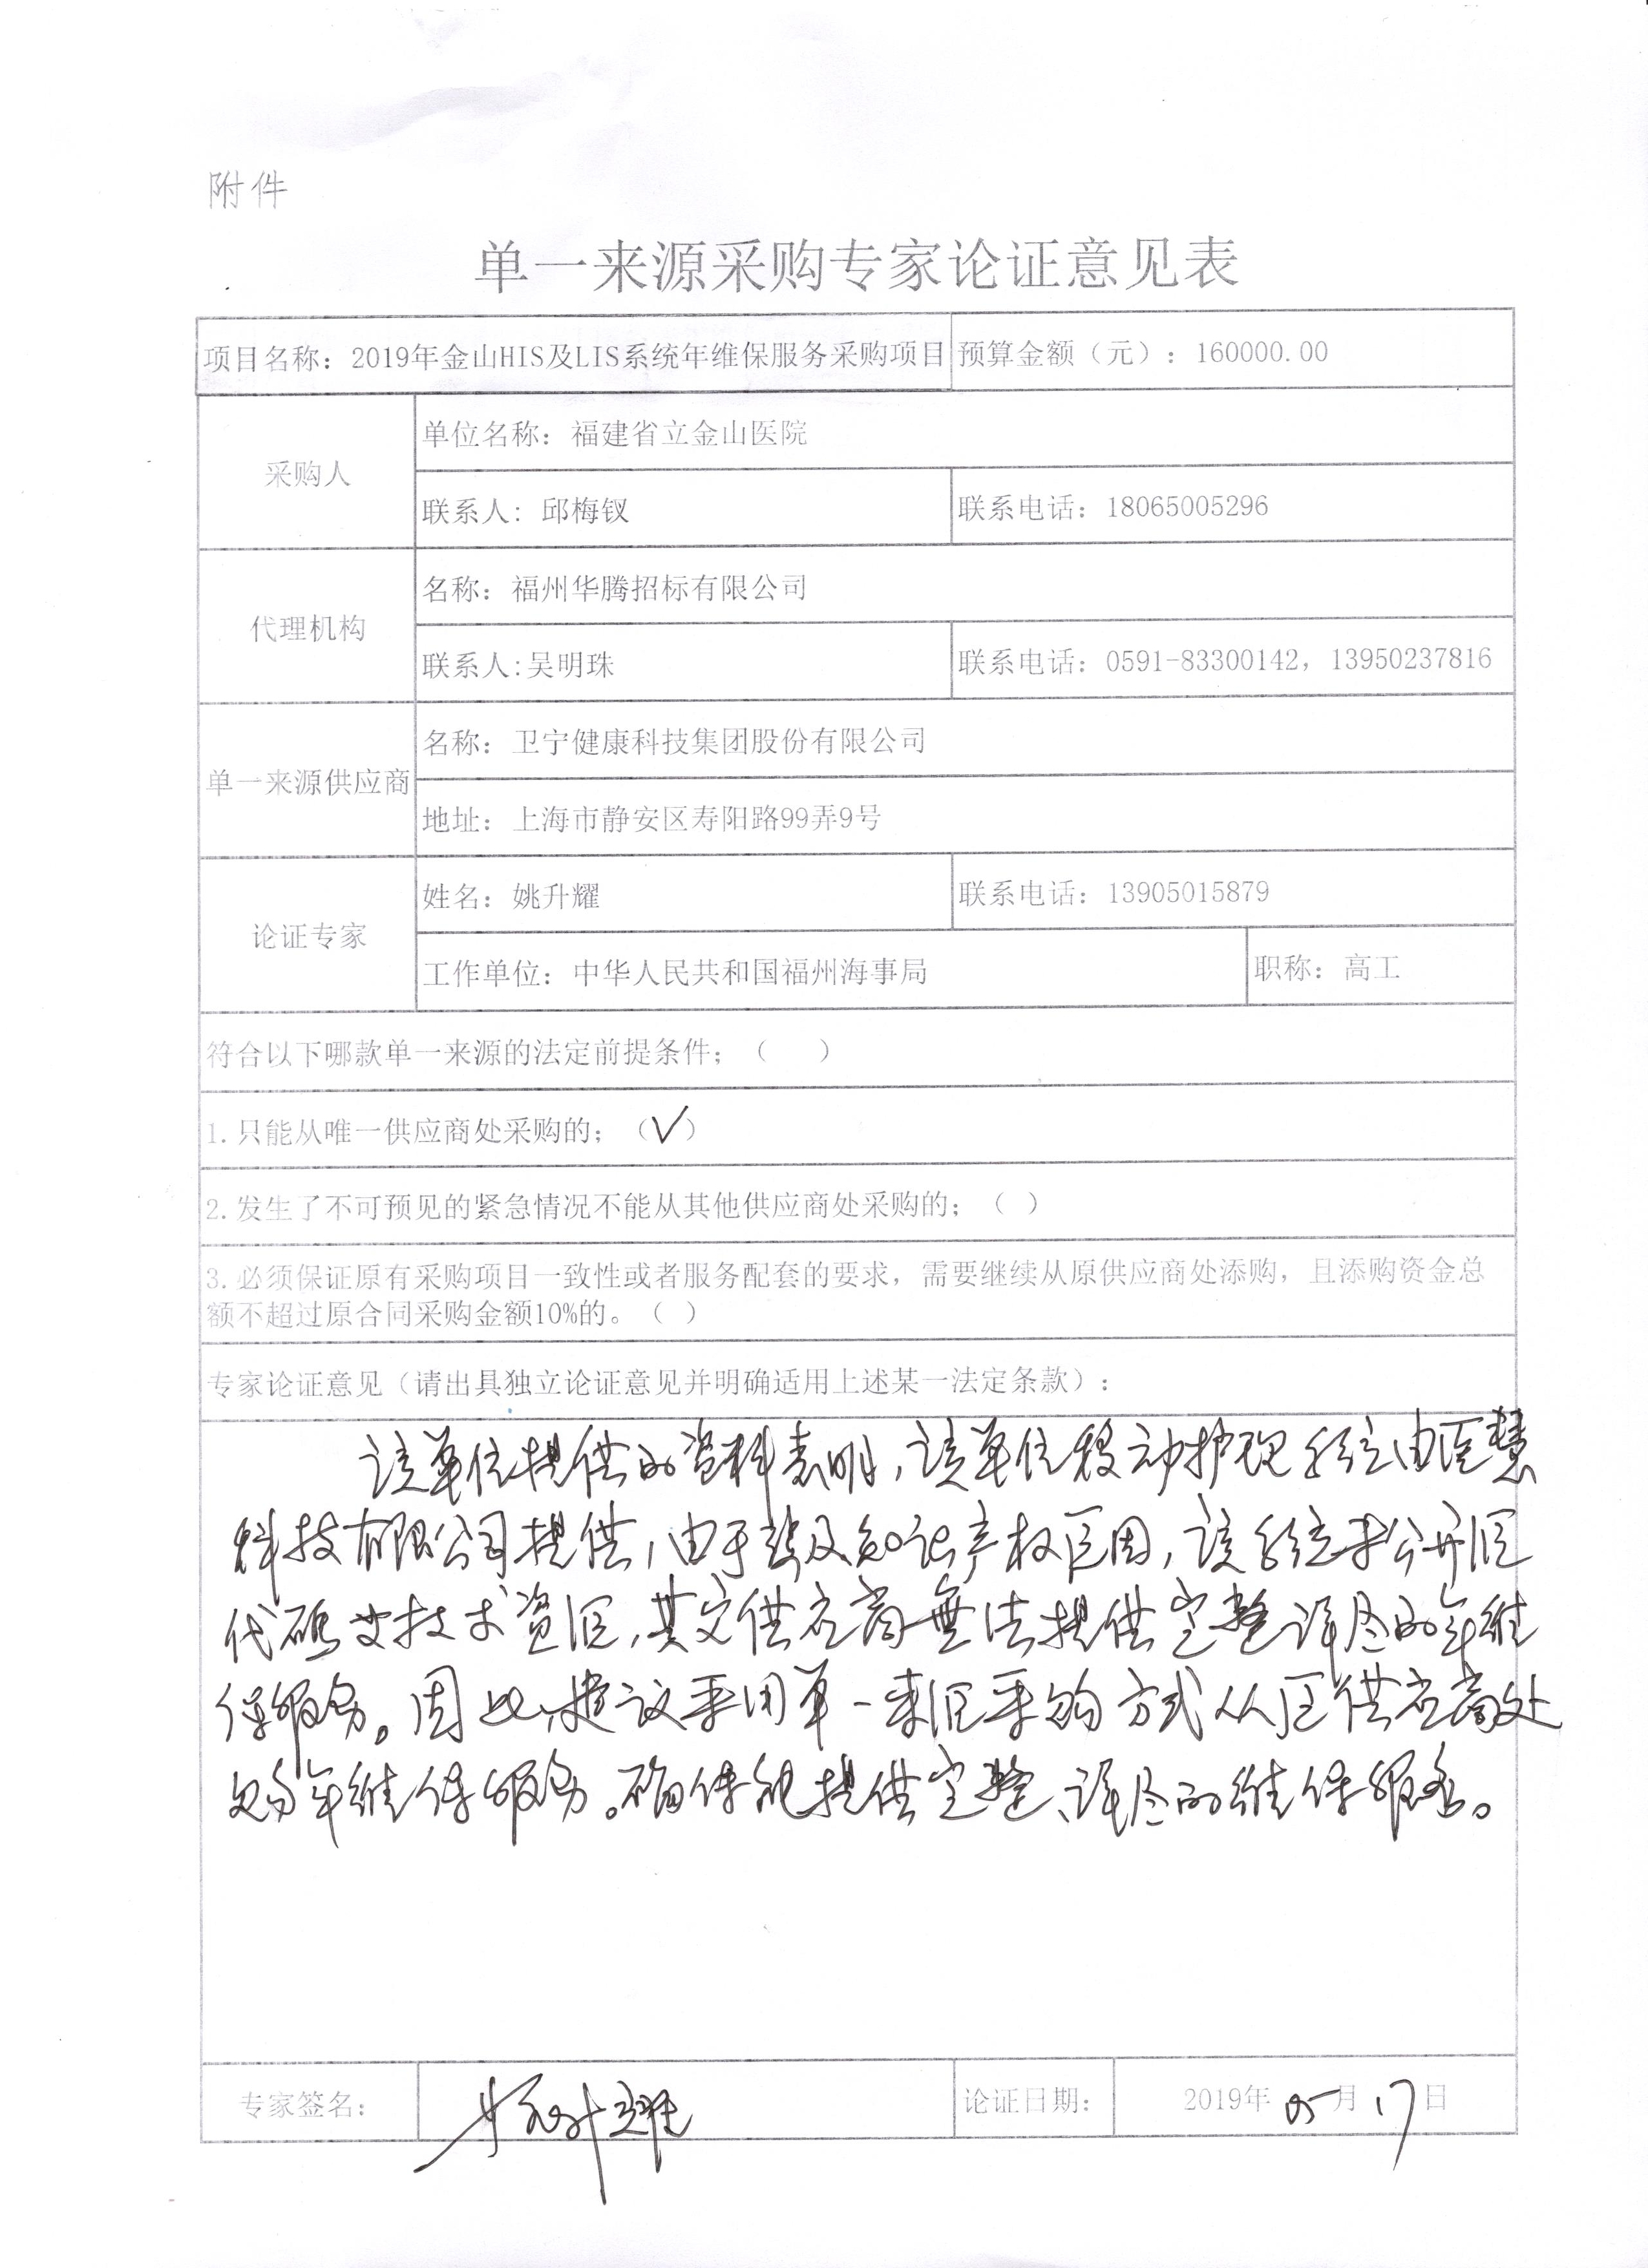 附件
单一来源采购专家论证意见表
项目名称：2019年金山HIS及LIS系统年维保服务采购项目 预算金额（元）：160000.00
采购人
单位名称：福建省立金山医院
联系人：邱梅钗 联系电话：18065005296
代理机构
名称：福州华腾招标有限公司
联系人:吴明珠 联系电话：0591-83300142，13950237816
单一来源供应商
名称：卫宁健康科技集团股份有限公司
地址：上海市静安区寿阳路99弄9号
论证专家
姓名：姚升耀 联系电话：13905015879
工作单位：中华人民共和国福州海事局 职称：高工
符合以下哪款单一来源的法定前提条件；（ ）
1.只能从唯一供应商处采购的；（✓）
2.发生了不可预见的紧急情况不能从其他供应商处采购的；（ ）
3.必须保证原有采购项目一致性或者服务配套的要求，需要继续从原供应商处添购，且添购资金总
额不超过原合同采购金额10%的。（ ）
专家论证意见（请出具独立论证意见并明确适用上述某一法定条款）：
该单位提供的资料表明，该单位移动护理系统由医慧
科技有限公司提供，由于涉及知识产权原因，该系统未公开源
代码及技术资源，其它供应商无法提供完整详尽的年维
保服务。因此，建议采用单一来源采购方式从原供应商处
购年维保服务。确保能提供完整、详尽的维保服务。
专家签名： 姚升耀 论证日期： 2019年05月17日